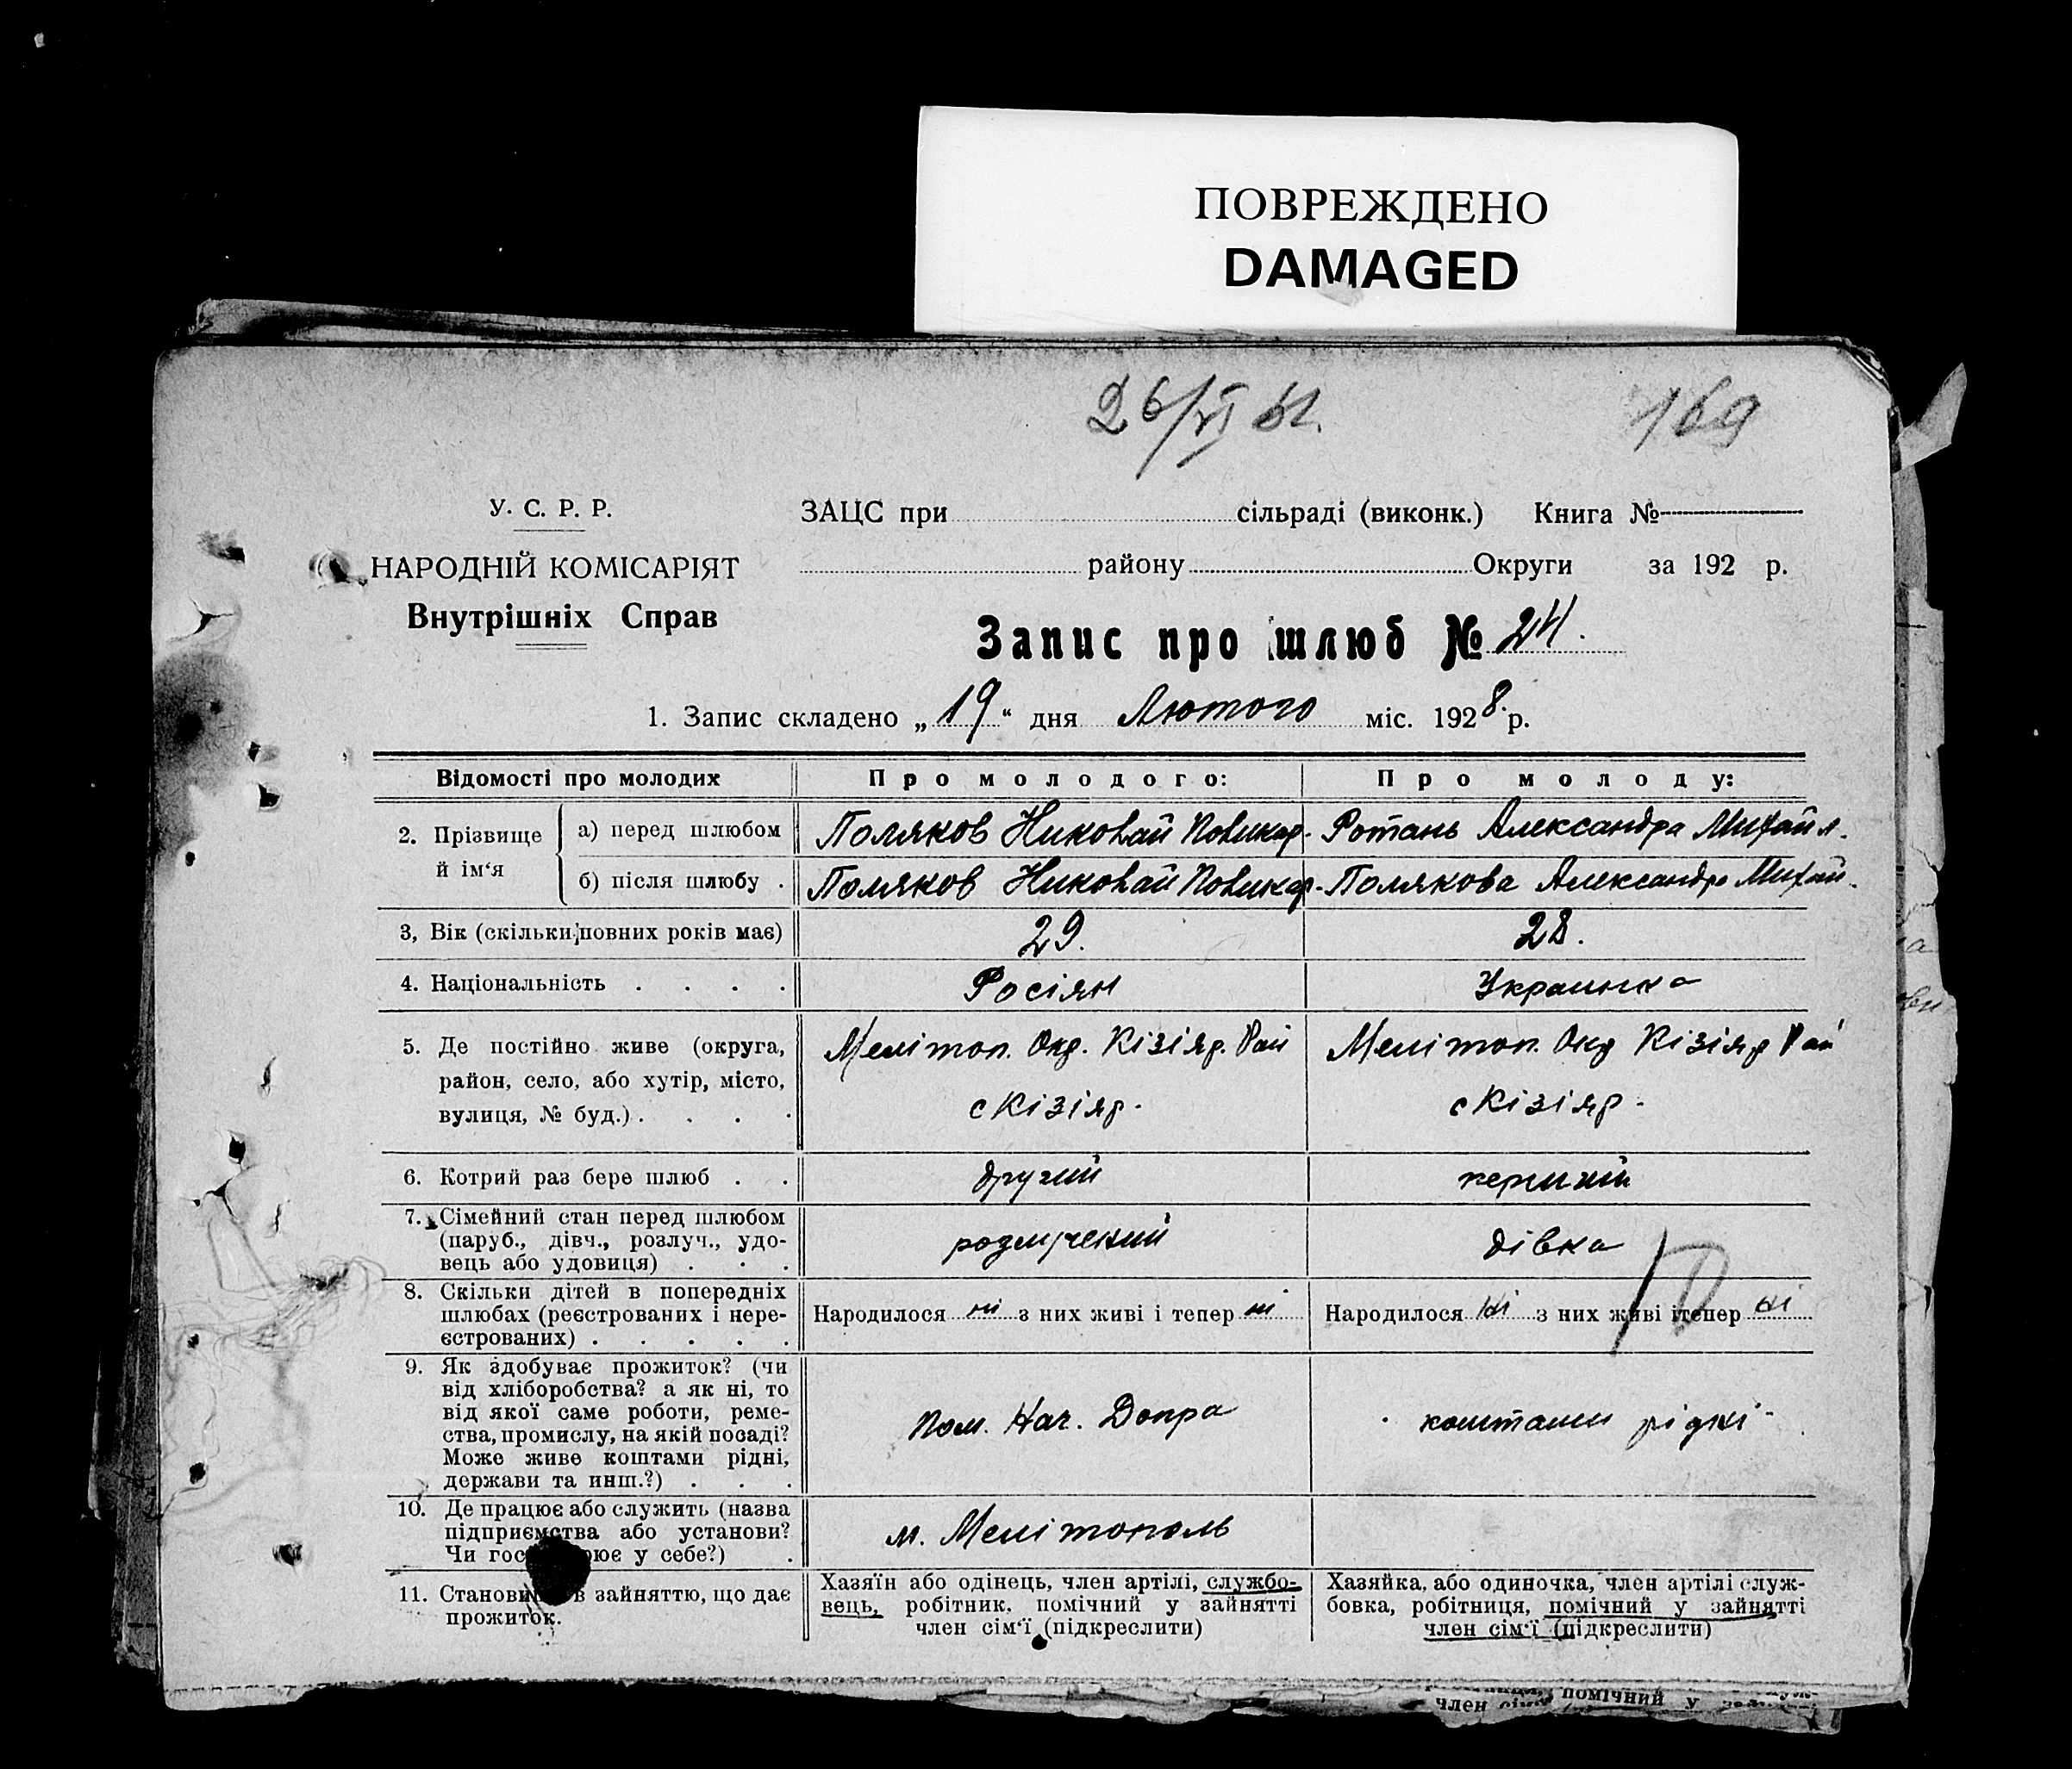 ПОВРЕЖДЕНО
DAMAGED
26/VI 61.
169
У. С. Р. Р.
НАРОДНІЙ КОМІСАРІЯТ
Внутрішніх Справ
ЗАЦС при сільраді (виконк.) Книга №
району Округи за 192 р.
Запис про шлюб № 24.
1. Запис складено „19“ дня Лютого міс. 1928 р.
Відомості про молодих
Про молодого:
Про молоду:
2. Прізвище й ім‘я
а) перед шлюбом
Поляков Николай Поликар.
Ротань Александра Михайл.
б) після шлюбу .
Поляков Николай Поликар.
Полякова Александра Михай.
3, Вік (скільки повних років має)
29.
28.
4. Національність . . . .
Росіян
Украинка
5. Де постійно живе (округа,
район, село, або хутір, місто,
вулиця, № буд.) . . . .
Мелітоп. Окр. Кізіяр. Рай
с Кізіяр.
Мелітоп. Окр Кізіяр Рай
с Кізіяр.
6. Котрий раз бере шлюб . .
другий
перший
7. Сімейний стан перед шлюбом
(паруб., дівч., розлуч., удо-
вець або удовиця) . . .
розлучений
дівка
8. Скільки дітей в попередніх
шлюбах (реєстрованих і нере-
єстрованих) . . . . .
Народилося ні з них живі і тепер ні
Народилося ні з них живі і тепер ні
9. Як здобуває прожиток? (чи
від хліборобства? а як ні, то
від якої саме роботи, реме-
ства, промислу, на якій посаді?
Може живе коштами рідні,
держави та инш.?) . . .
Пом. Нач. Допра
коштами рідні
10. Де працює або служить (назва
підприємства або установи?
Чи гос рює у себе?) .
м. Мелітополь
11. Станови в зайняттю, що дає
прожиток.
Хазяїн або одінець, член артілі, службо-
вець, робітник, помічний у зайнятті
член сім‘ї (підкреслити)
Хазяйка, або одиночка, член артілі служ-
бовка, робітниця, помічний у зайнятті
член сім‘ї (підкреслити)
помічний у
член